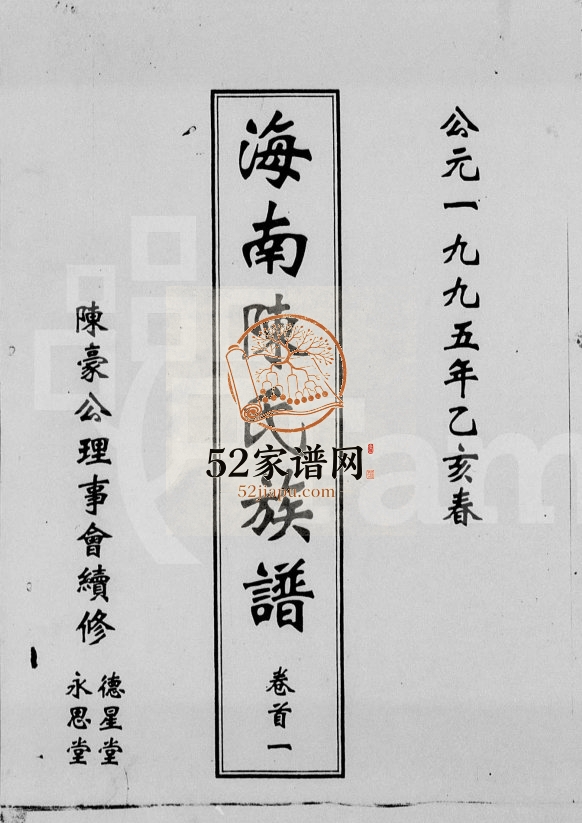 公元一九九五年乙亥春
海南陳氏族譜
卷首一
陳豪公理事會續修
德星堂
永思堂
52家谱网
52jiapu.com